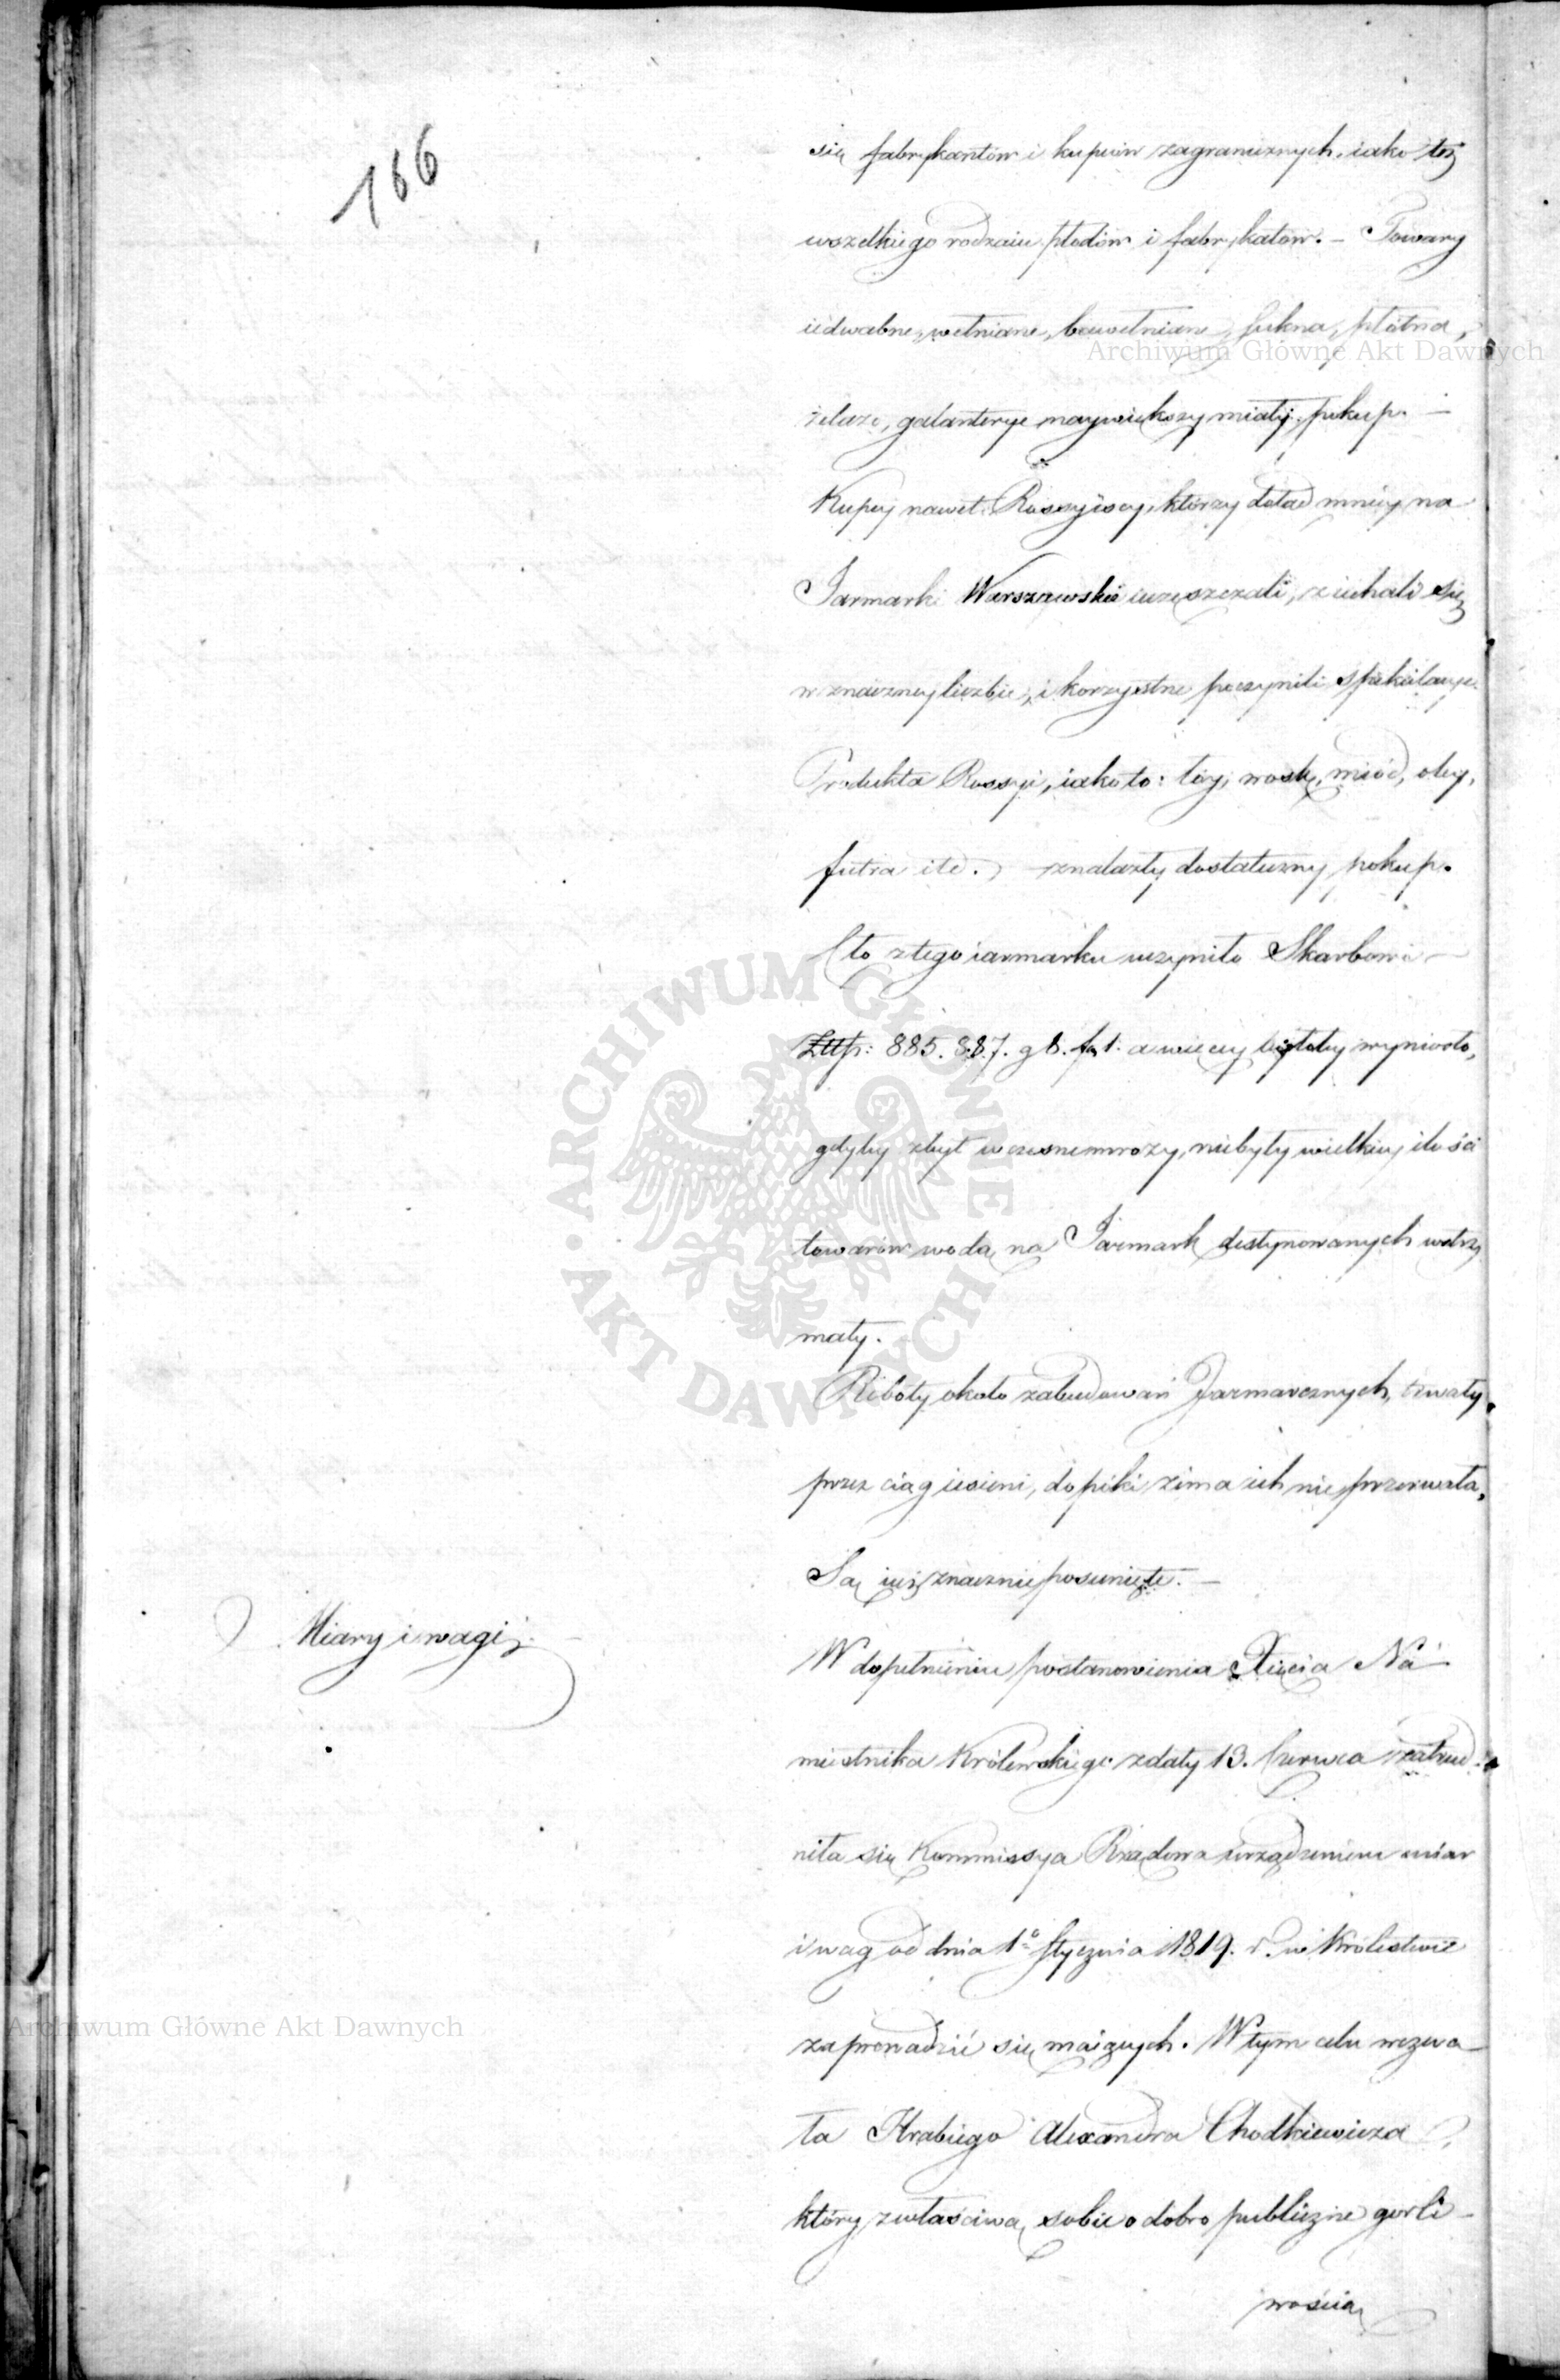 166
się fabrykantów i kupców zagranicznych, iako też
wszelkiego rodzaiu płodów i fabrykatów. – Towary
iedwabne, wełniane, bawełniane, sukna, płótna,
Archiwum Główne Akt Dawnych
żelazo, galanterye naywiększy miały pokup. –
Kupcy nawet Rossyiscy, którzy dotąd mniey na
Jarmarki Warszawskie uczęszczali, ziechali się
w znaczney liczbie, i korzystne poczynili spekulacye.
Produkta Rossyi, iako to: łóy, wosk, miód, oley,
futra itd., znalazły dostateczny pokup.
Cło z tego iarmarku uczyniło Skarbowi –
Złtp: 885.887. g 8. f. 1. a więcey byłoby wyniosło,
gdyby zbyt wczesne mrozy, niebyły wielkiey ilości
towarów wodą na Jarmark destynowanych wstrzy
mały.
Roboty około zabudowań Jarmarcznych, trwały
przez ciąg iesieni, dopóki zima ich nie przerwała,
Są iuż znacznie posunięte. –
Miary i wagi. –
W dopełnieniu postanowienia Xięcia Na-
miestnika Królewskiego z daty 13. Czerwca zatrud-
niła się Kommissya Rządowa urządzeniem miar
i wag od dnia 1º Stycznia 1819. r. w Królestwie
zaprowadzić się maiących. W tym celu wezwa-
Archiwum Główne Akt Dawnych
ła Hrabiego Alexandra Chodkiewicza,
który z właściwą sobie o dobro publiczne gorli-
wością
ARCHIWUM GŁÓWNE AKT DAWNYCH